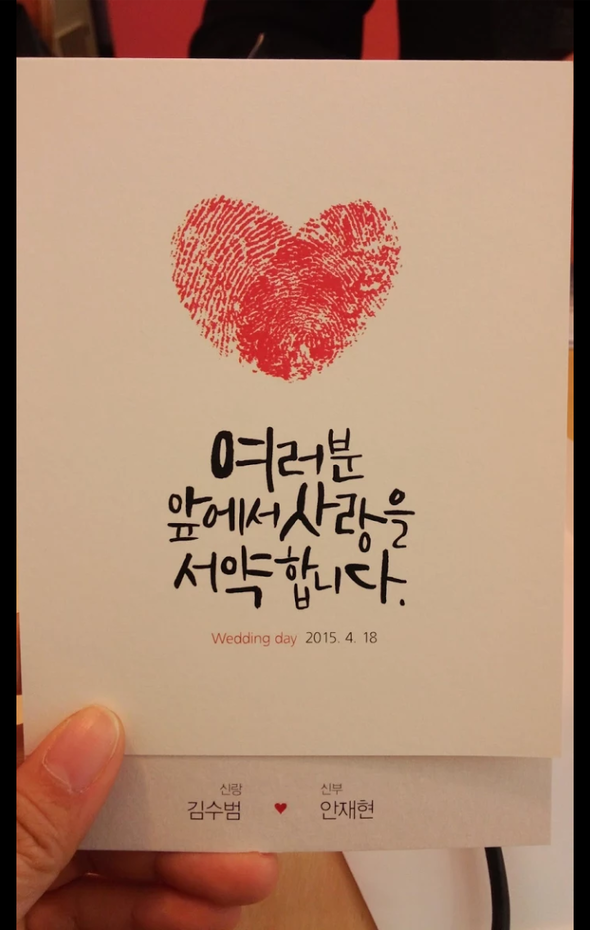 여러분
앞에서 사랑을
서약합니다.
Wedding day 2015. 4. 18
신랑 신부
김수범 ♥ 안재현